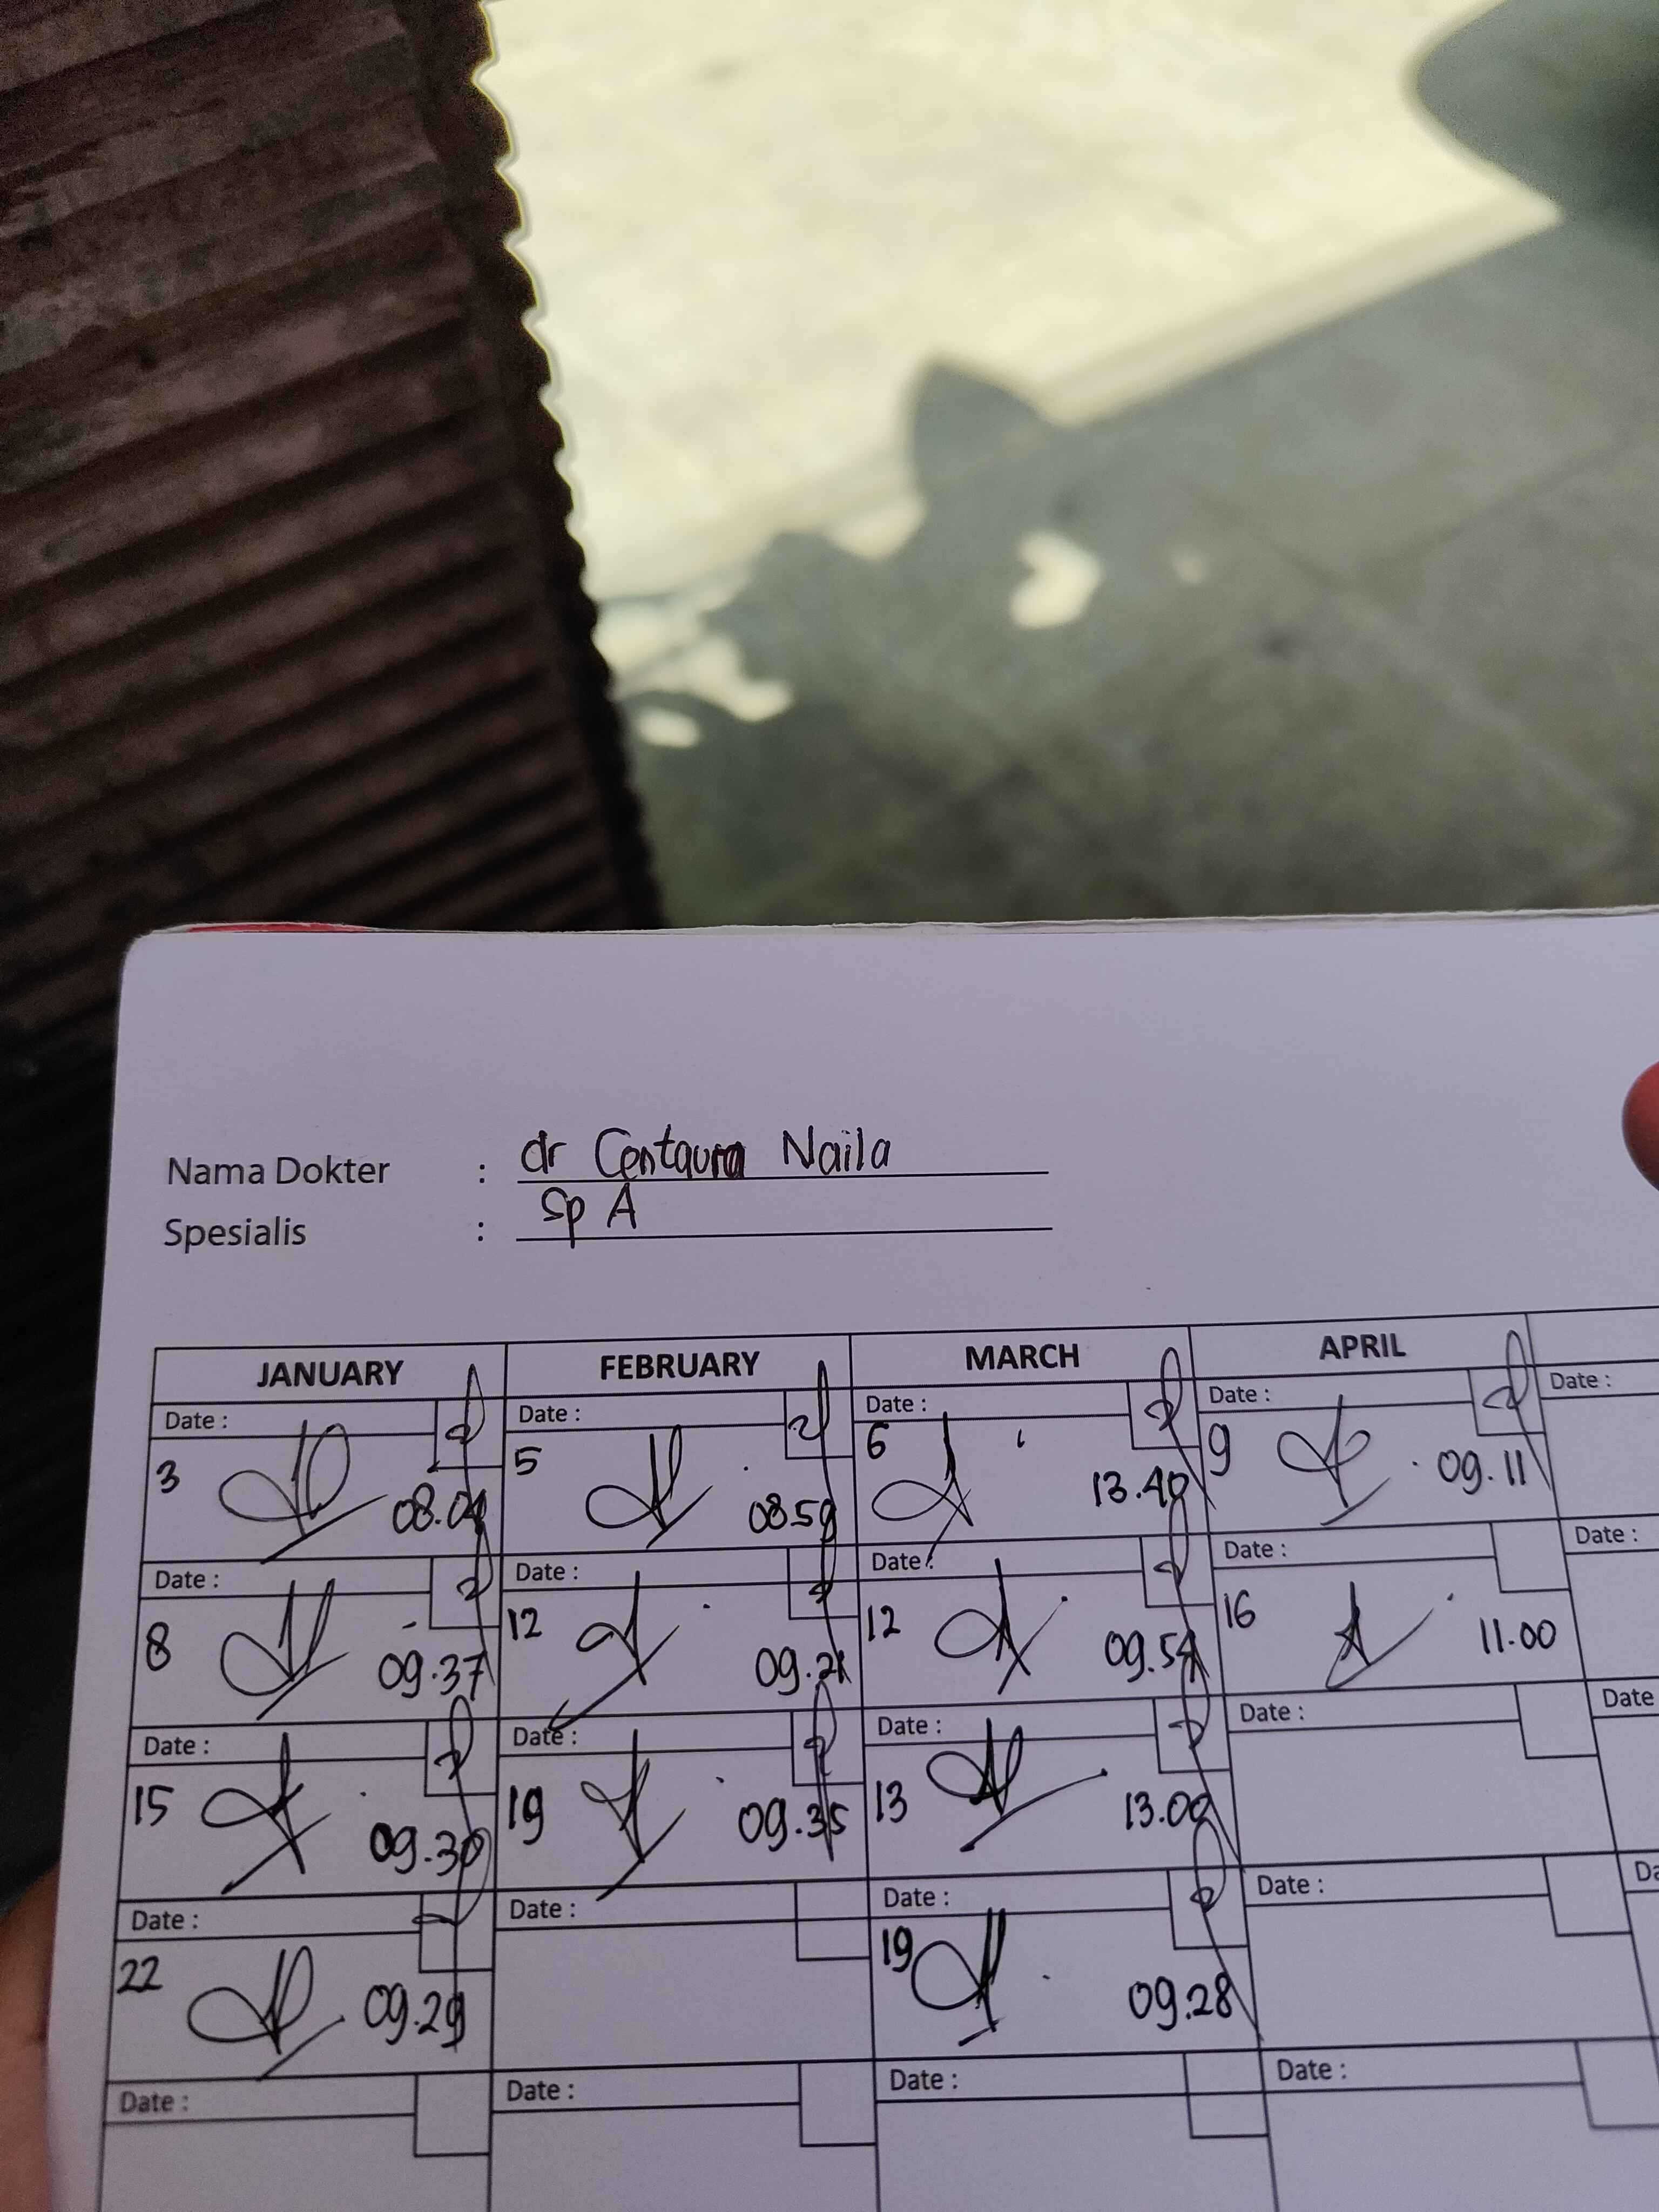 Nama Dokter : dr Centaura Naila
Spesialis : Sp A
JANUARY FEBRUARY MARCH APRIL
Date : Date : Date : Date : Date :
3 5 08.59 6 13.40 9 09.11
Date : Date : Date : Date : Date :
8 09.37 12 12 09.54 16 11.00
Date : Date : Date : Date : Date
15 09.30 19 09.35 13 13.00
Date : Date : Date : Date :
22 09.29 19 09.28
Date : Date : Date : Date :